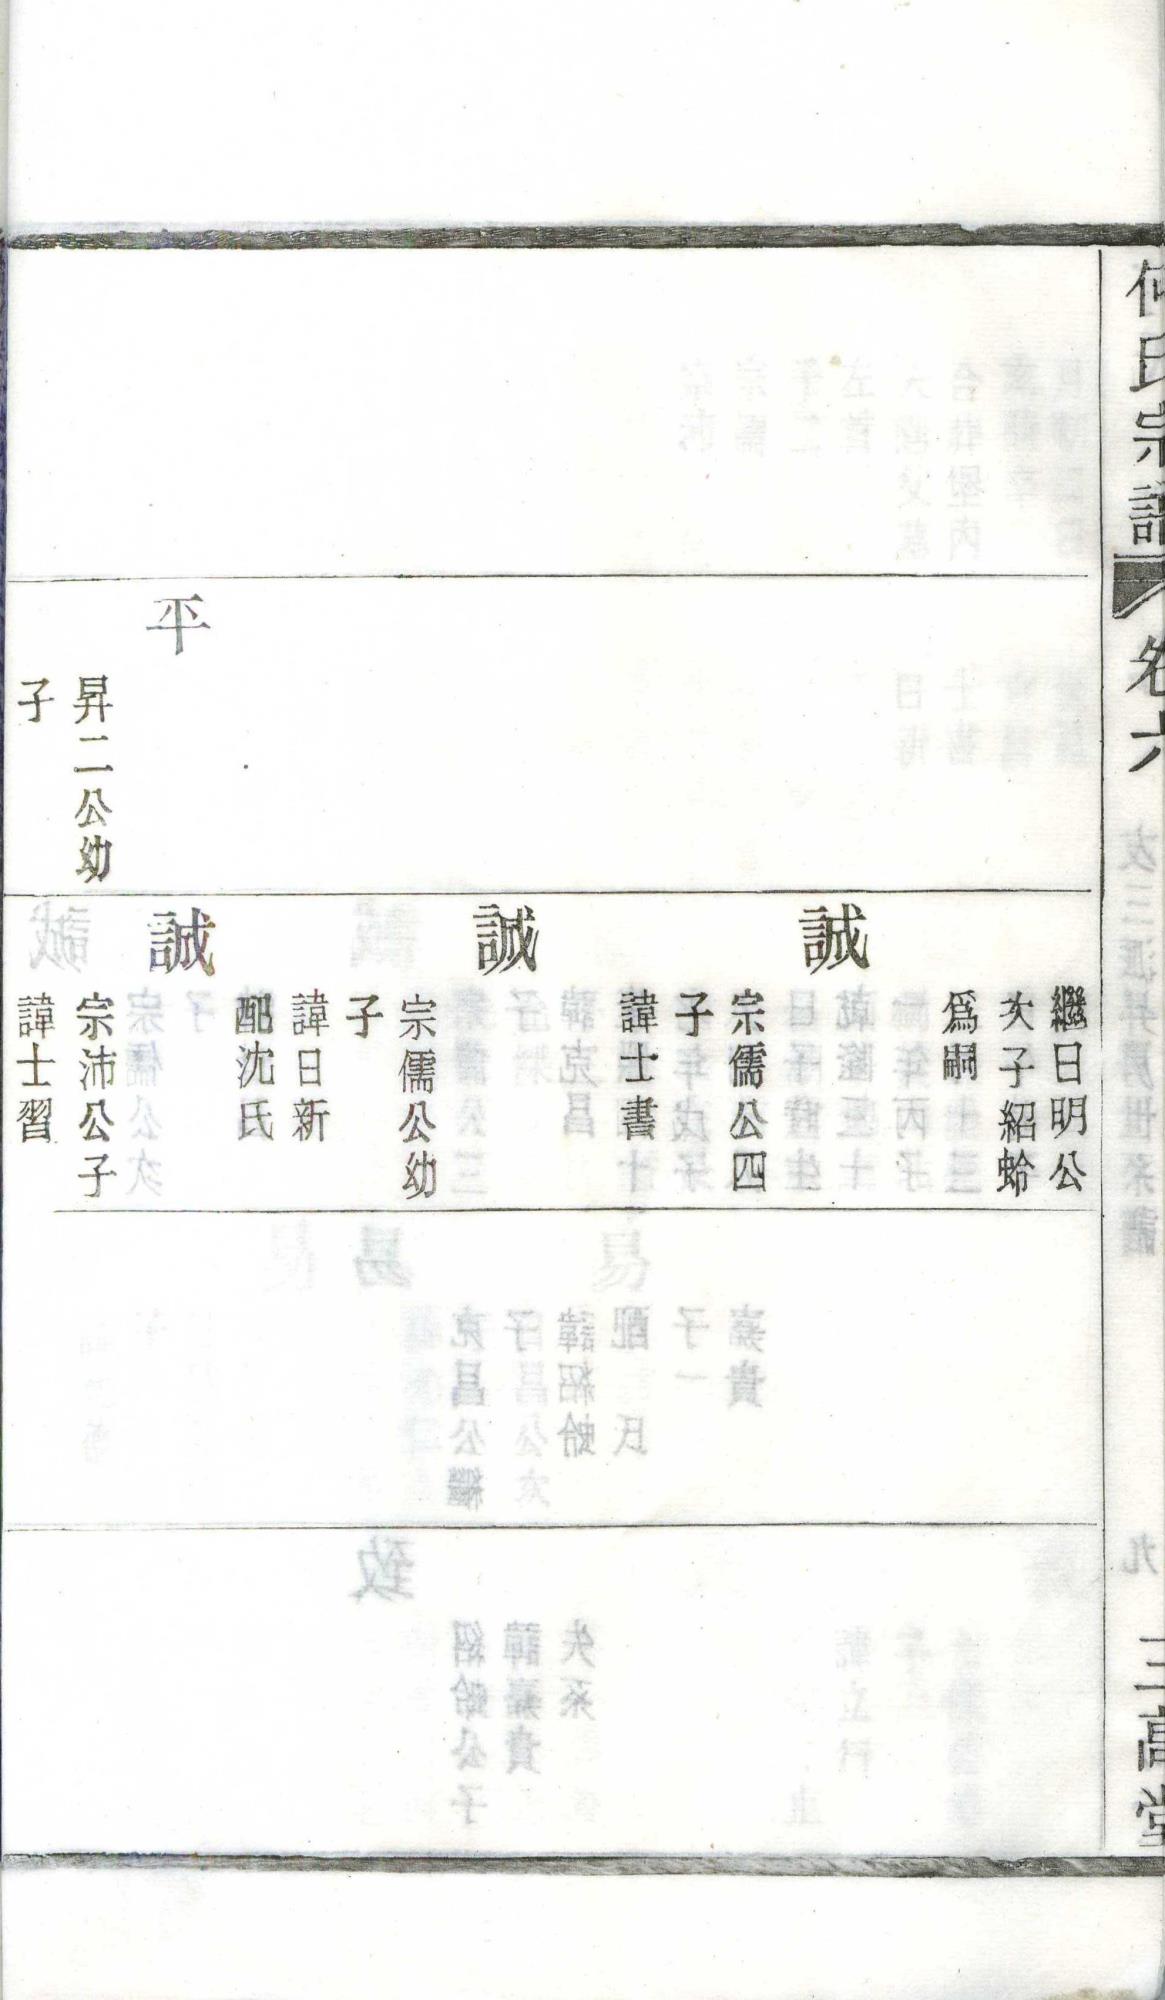 何氏宗譜
卷六
三高堂
平
昇二公幼
子
繼日明公
次子紹蛉
爲嗣
誠
宗儒公四
子
諱士書
誠
宗儒公幼
子
諱日新
配沈氏
誠
宗沛公子
諱士習